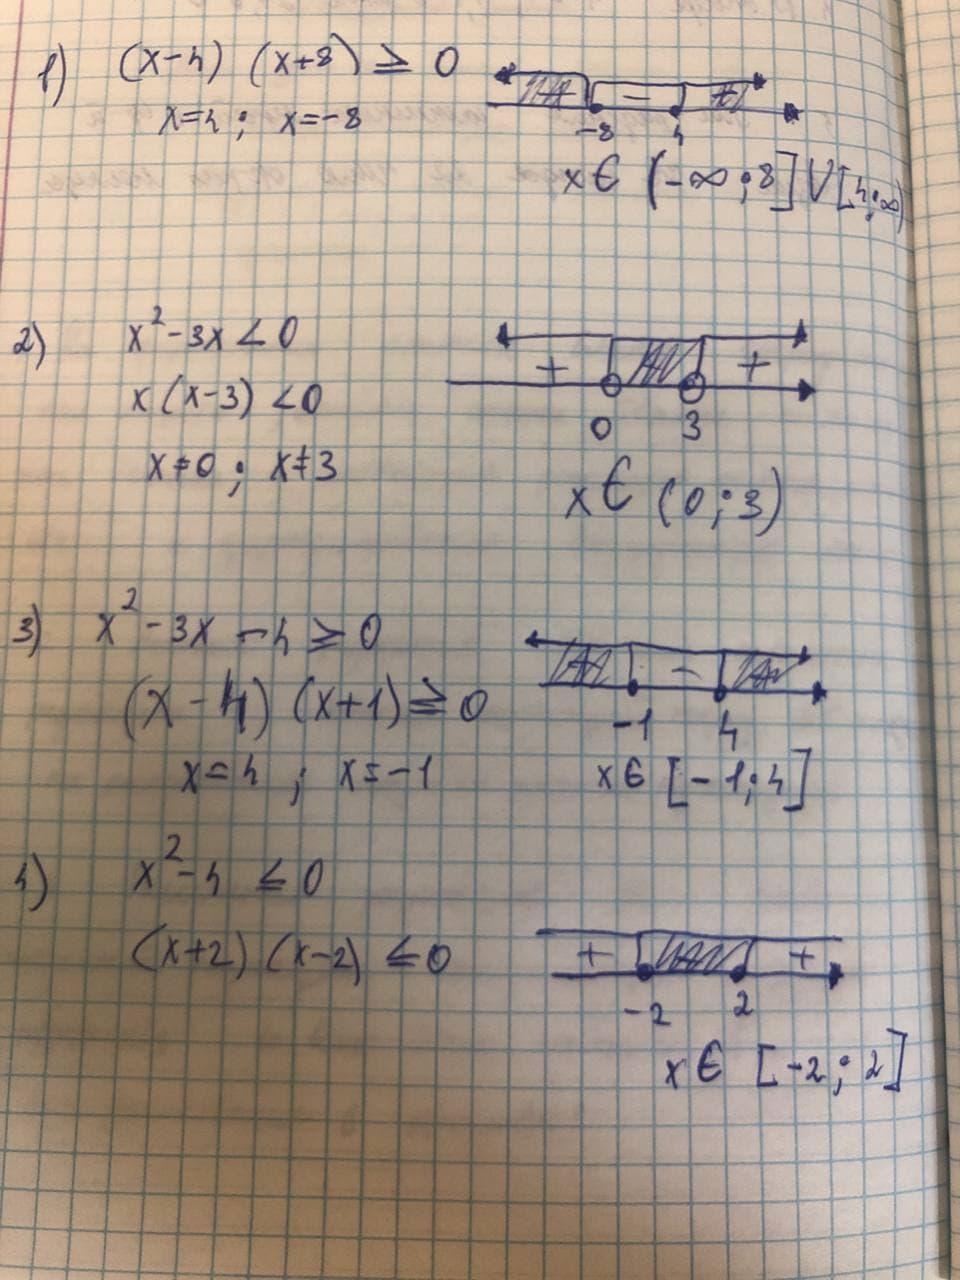 1) (x-4) (x+8) ≥ 0
x=4 ; x=-8
- +
-8 4
x∈ (-∞;8]V[4;∞)
2) x²-3x<0
x(x-3)<0
x≠0 ; x≠3
+ +
0 3
x∈ (0;3)
3) x²-3x-4≥0
(x-4) (x+1)≥0
x=4 ; x=-1
-
-1 4
x∈ [-1;4]
4) x²-4 ≤0
(x+2) (x-2) ≤0
+ +
-2 2
x∈ [-2;2]